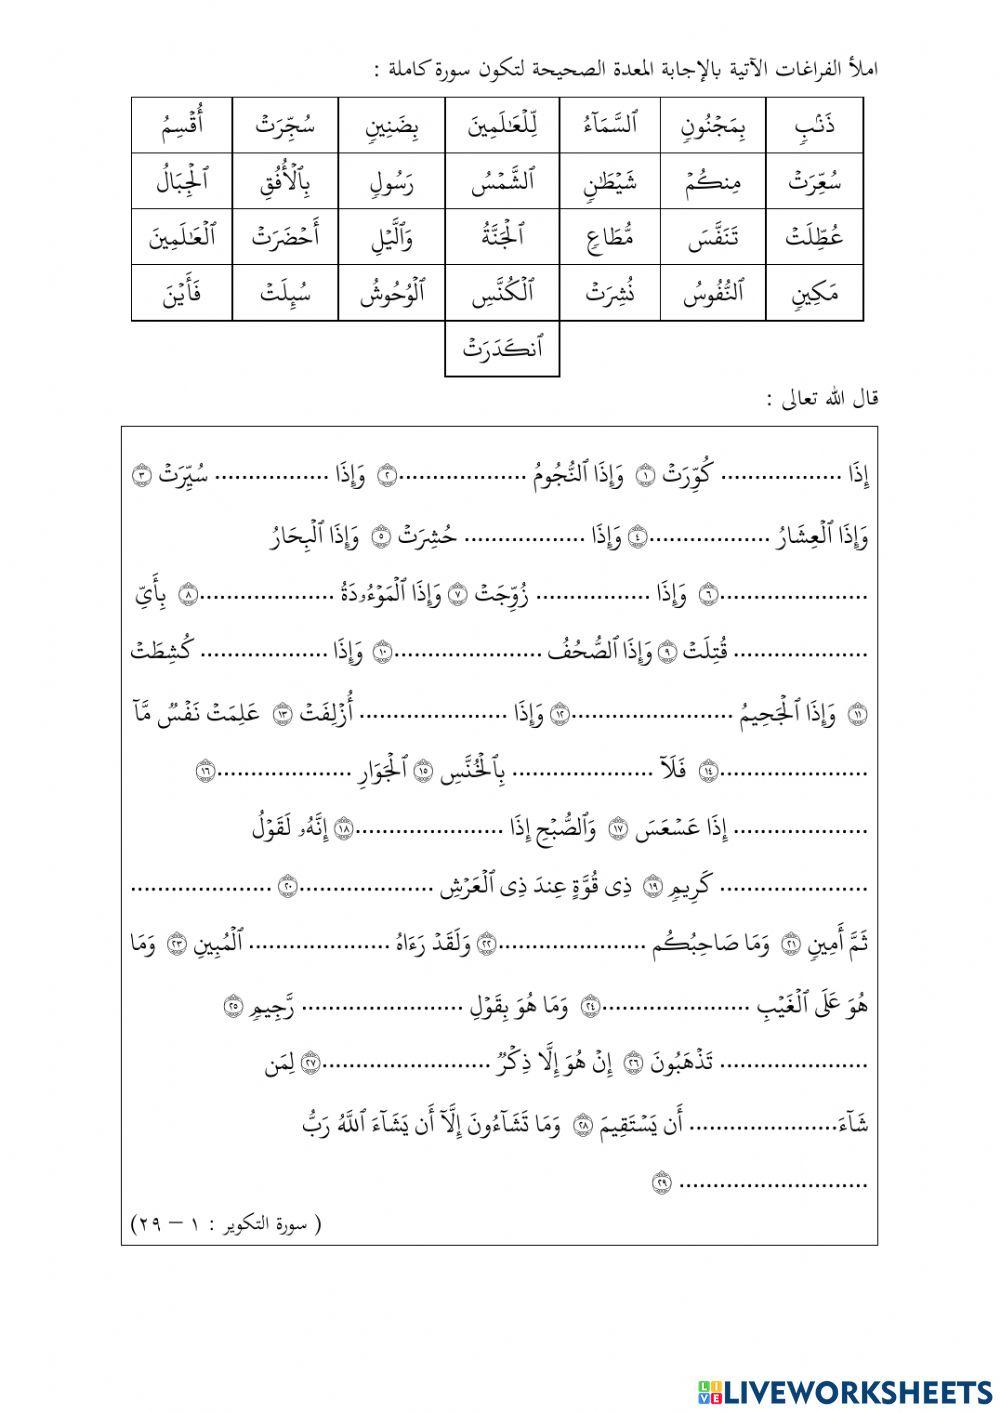 املأ الفراغات الآتية بالإجابة المعدة الصحيحة لتكون سورة كاملة :
ذَنۢبٖ بِمَجۡنُونٖ ٱلسَّمَآءُ لِّلۡعَٰلَمِينَ بِضَنِينٖ سُجِّرَتۡ أُقۡسِمُ
سُعِّرَتۡ مِنكُمۡ شَيۡطَٰنٖ ٱلشَّمۡسُ رَسُولٖ بِٱلۡأُفُقِ ٱلۡجِبَالُ
عُطِّلَتۡ تَنَفَّسَ مُّطَاعٖ ٱلۡجَنَّةُ وَٱلَّيۡلِ أَحۡضَرَتۡ ٱلۡعَٰلَمِينَ
مَكِينٖ ٱلنُّفُوسُ نُشِرَتۡ ٱلۡكُنَّسِ ٱلۡوُحُوشُ سُئِلَتۡ فَأَيۡنَ
ٱنكَدَرَتۡ
قال الله تعالى :
إِذَا .................. كُوِّرَتۡ ١ وَإِذَا ٱلنُّجُومُ ................... ٢ وَإِذَا ................. سُيِّرَتۡ ٣
وَإِذَا ٱلۡعِشَارُ .................. ٤ وَإِذَا .................. حُشِرَتۡ ٥ وَإِذَا ٱلۡبِحَارُ
...................... ٦ وَإِذَا ................. زُوِّجَتۡ ٧ وَإِذَا ٱلۡمَوۡءُۥدَةُ .................... ٨ بِأَيِّ
.................... قُتِلَتۡ ٩ وَإِذَا ٱلصُّحُفُ ...................... ١٠ وَإِذَا ................... كُشِطَتۡ
١١ وَإِذَا ٱلۡجَحِيمُ ........................ ١٢ وَإِذَا ...................... أُزۡلِفَتۡ ١٣ عَلِمَتۡ نَفۡسٞ مَّآ
...................... ١٤ فَلَآ ..................... بِٱلۡخُنَّسِ ١٥ ٱلۡجَوَارِ .................... ١٦
.................... إِذَا عَسۡعَسَ ١٧ وَٱلصُّبۡحِ إِذَا ...................... ١٨ إِنَّهُۥ لَقَوۡلُ
...................... كَرِيمٖ ١٩ ذِي قُوَّةٍ عِندَ ذِي ٱلۡعَرۡشِ .................... ٢٠ .....................
ثَمَّ أَمِينٖ ٢١ وَمَا صَاحِبُكُم ...................... ٢٢ وَلَقَدۡ رَءَاهُ ..................... ٱلۡمُبِينِ ٢٣ وَمَا
هُوَ عَلَى ٱلۡغَيۡبِ ...................... ٢٤ وَمَا هُوَ بِقَوۡلِ ........................ رَّجِيمٖ ٢٥
...................... تَذۡهَبُونَ ٢٦ إِنۡ هُوَ إِلَّا ذِكۡرٞ ......................... ٢٧ لِمَن
شَآءَ...................... أَن يَسۡتَقِيمَ ٢٨ وَمَا تَشَآءُونَ إِلَّآ أَن يَشَآءَ ٱللَّهُ رَبُّ
............................ ٢٩
( سورة التكوير : ١ – ٢٩)
LIVEWORKSHEETS